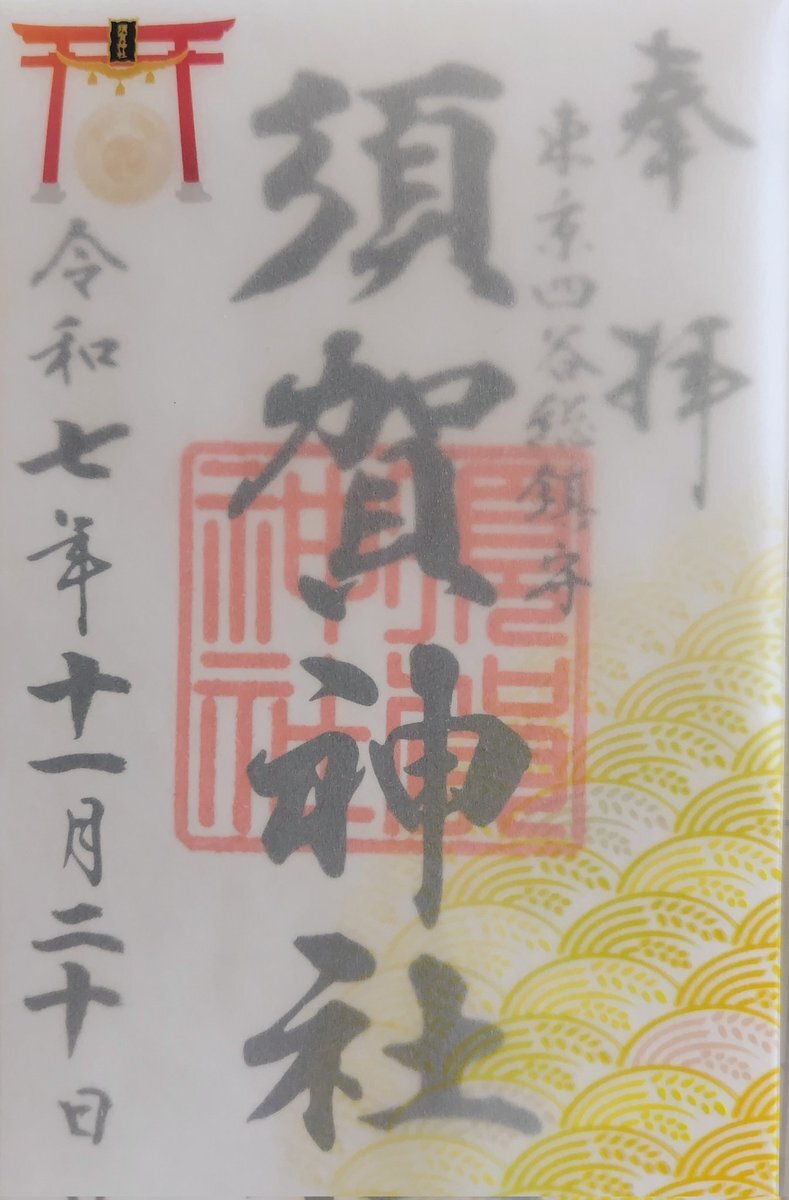 奉拝
東京四谷総鎮守
須賀神社
須賀神社
須賀神社
令和七年十一月二十日